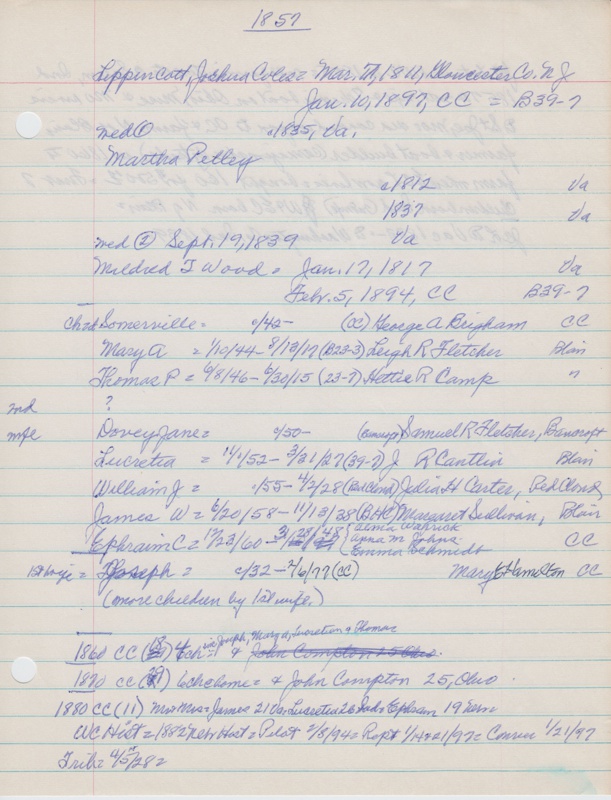 1857
Lippincott, Joshua Coles = Mar. 17, 1811, Gloucester Co. N J
Jan. 10, 1897, CC = B39-7
med ① c1835, Va.
Martha Petley
c1812 Va
1837 Va
med ② Sept. 19, 1839 Va
Mildred T Wood = Jan. 17, 1817 Va
Feb. 5, 1894, CC B39-7
Somerville = c/42- (CC) George A Brigham CC
Mary A = 1/10/44 - 8/13/17 (B23-3) Leigh R Fletcher Blair
Thomas P = 6/8/46 - 6/30/15 (23-7) Hettie R Camp "
md ?
Dovey Jane = c/50- Samuel R Fletcher, Bancroft
Lucretia = 11/1/52 - 3/31/27 (39-7) J R Cantlin Blair
William J = c/55 - 4/2/28 Julia H Carter, Red Cloud
James W = 6/20/58 - 11/13/38 Margaret Sullivan, Blair
Ephraim C = 12/23/60 - Alma Warrick
Anna M Johns CC
Emma Schmidt
1st wife = Joseph = c/32 - 2/6/77 (CC) Mary Hamilton CC
(more children by 1st wife.)
Joseph, Mary A, Lucretia & Thomas
1860 CC 4 ch = & John Compton 25 Ohio
1870 CC 6 ch home = & John Compton 25, Ohio
1880 CC (11) James 21 Va Lucretia 26 Ephraim 19 Nebr
WC Hist = 1882 Nebr Hist = Pilot 2/8/94 = Rept 1/14 & 21/97 = Conver 1/21/97
Trib =